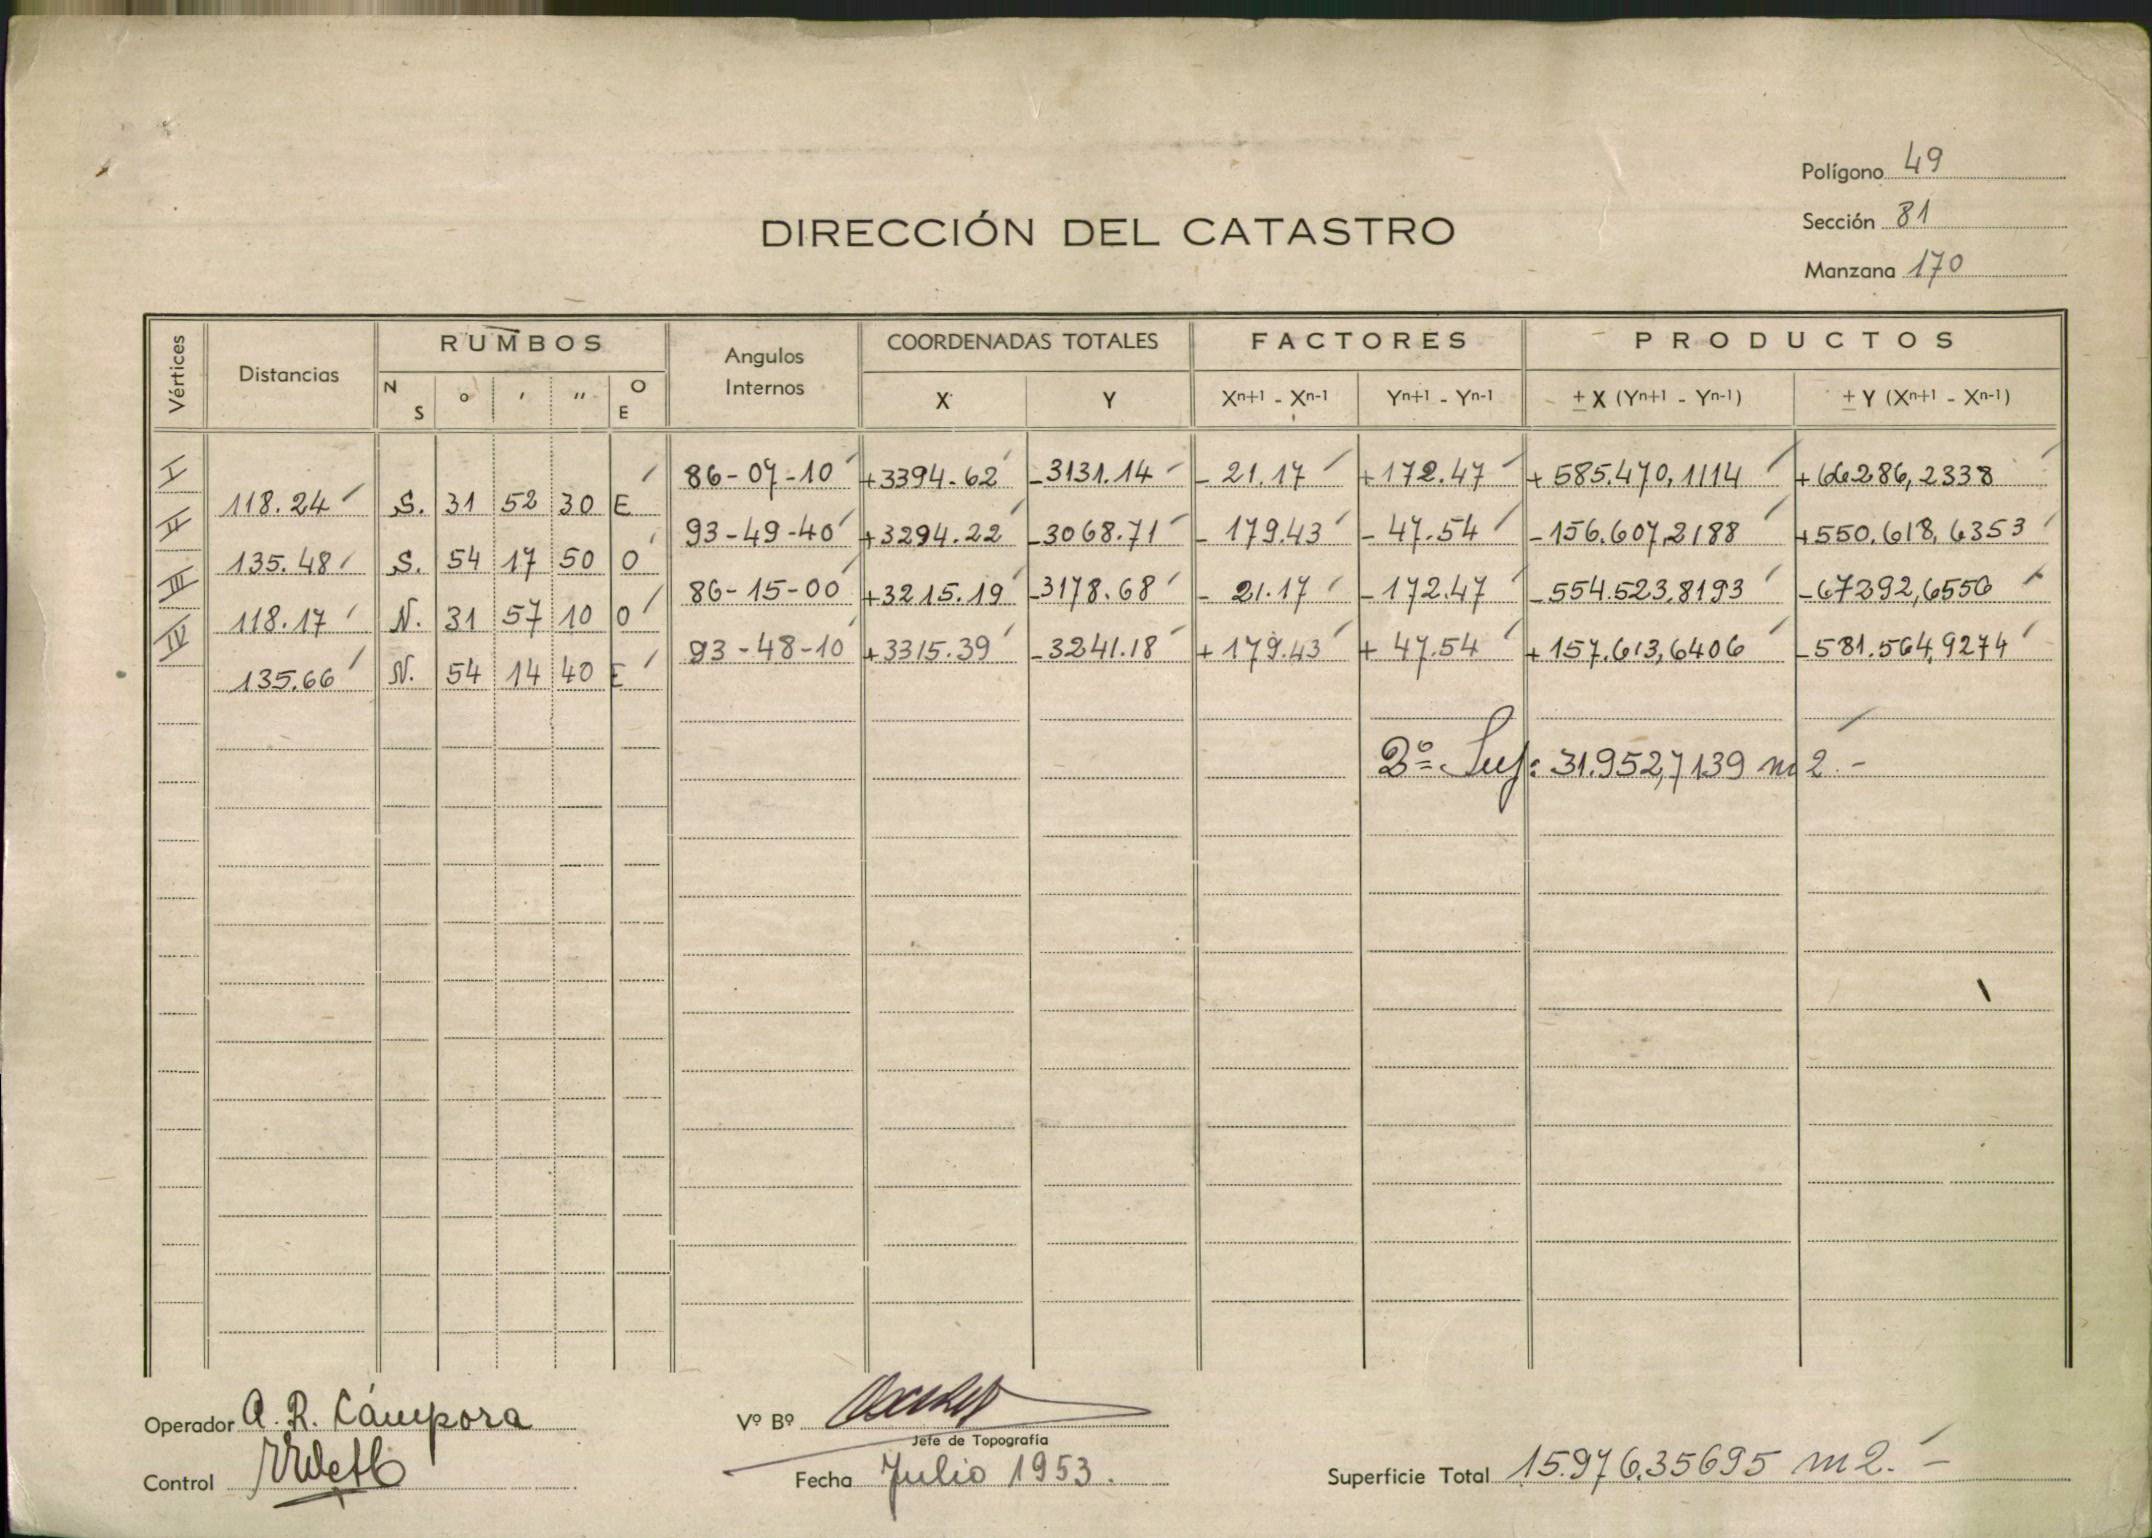 Polígono 49
Sección 81
Manzana 170
DIRECCIÓN DEL CATASTRO
Vértices Distancias RUMBOS Angulos Internos COORDENADAS TOTALES FACTORES PRODUCTOS
N S ° ' " O E X Y Xn+1 - Xn-1 Yn+1 - Yn-1 ± X (Yn+1 - Yn-1) ± Y (Xn+1 - Xn-1)
I 86-07-10 +3394.62 -3131.14 - 21.17 +172.47 + 585.470,1114 +66286,2338
118.24 S. 31 52 30 E
II 93-49-40 +3294.22 -3068.71 - 179.43 - 47.54 -156.607,2188 +550.618,6353
135.48 S. 54 17 50 O
III 86-15-00 +3215.19 -3178.68 - 21.17 -172.47 -554.523,8193 -67292,6556
118.17 N. 31 57 10 O
IV 93-48-10 +3315.39 -3241.18 + 179.43 + 47.54 +157.613,6406 -581.564,9274
135.66 N. 54 14 40 E
2º= Sup: 31.952,7139 m2.-
Operador A. R. Cámpora
Vº Bº
Jefe de Topografía
Control
Fecha Julio 1953.
Superficie Total 15.976,35695 m2.-